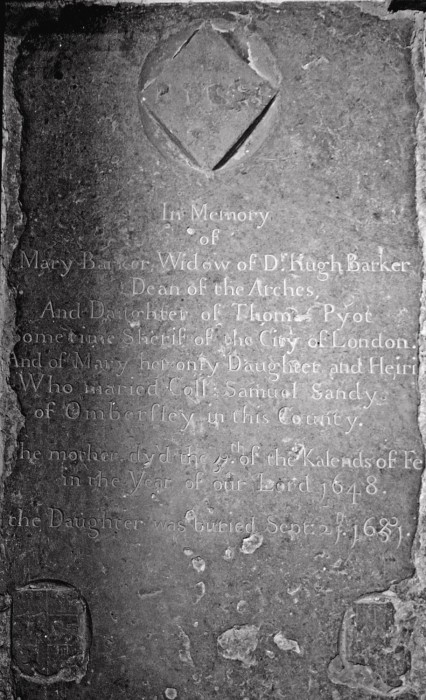 In Memory
of
Mary Barker, Widow of Dr. Hugh Barker
Dean of the Arches,
And Daughter of Thomas Pyot
Sometime Sherif of the City of London.
And of Mary her only Daughter and Heir
Who maried Coll: Samuel Sandys
of Ombersley in this County.
The mother dy'd the of the Kalends of Fe
in the Year of our Lord 1648.
the Daughter was buried Sept: